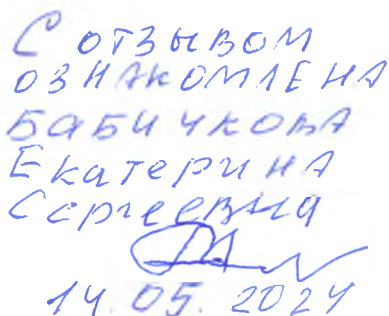 С отзывом
ознакомлена
Бабичкова
Екатерина
Сергеевна
14.05.2024